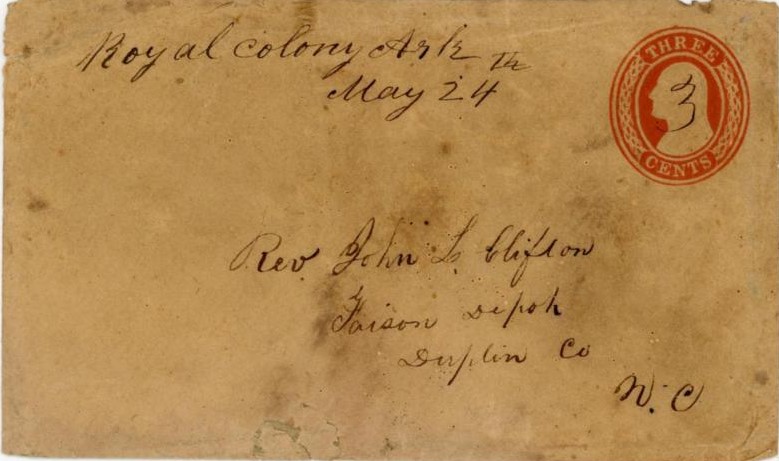 Royal Colony Ark
May 24th
THREE
3
CENTS
Rev John L. Clifton
Faison Depot
Duplin Co
N. C